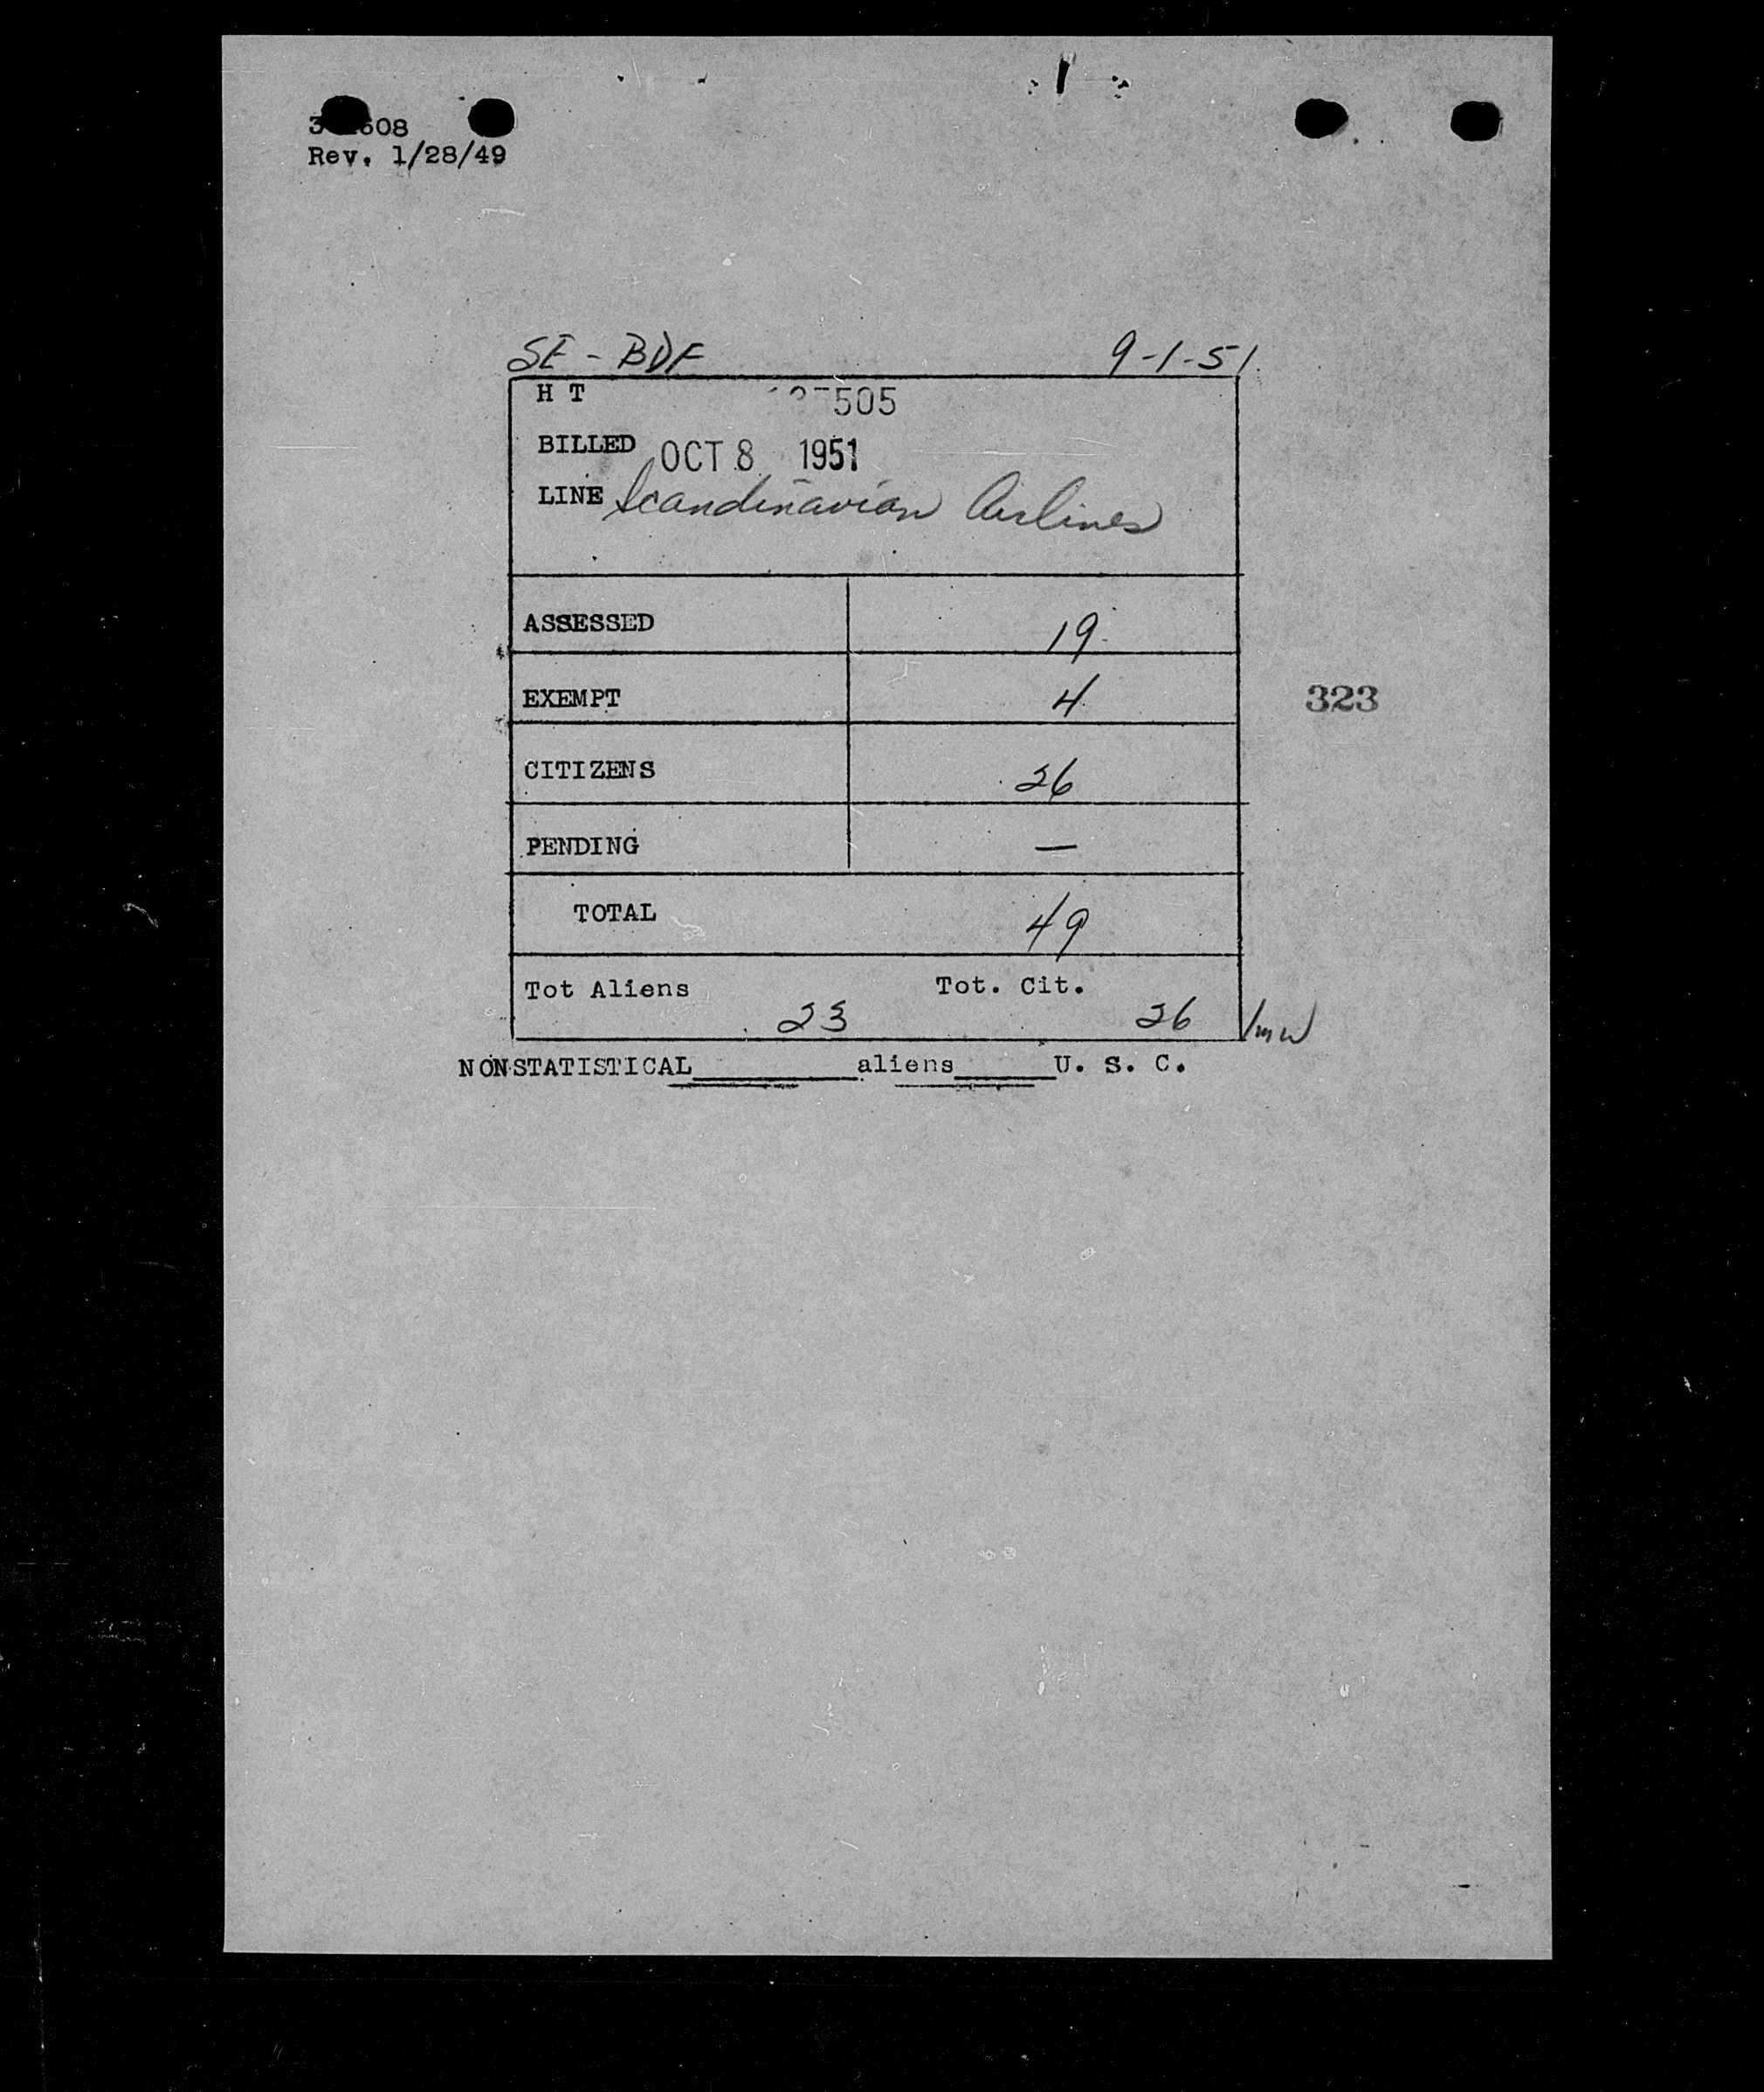 Rev. 1/28/49
SE - BDF 9-1-51
H T 505
BILLED OCT 8 1951
LINE Scandinavian Airlines
ASSESSED 19
EXEMPT 4
323
CITIZENS 26
PENDING —
TOTAL 49
Tot Aliens Tot. Cit.
23 26 /mw
NONSTATISTICAL______aliens______U. S. C.